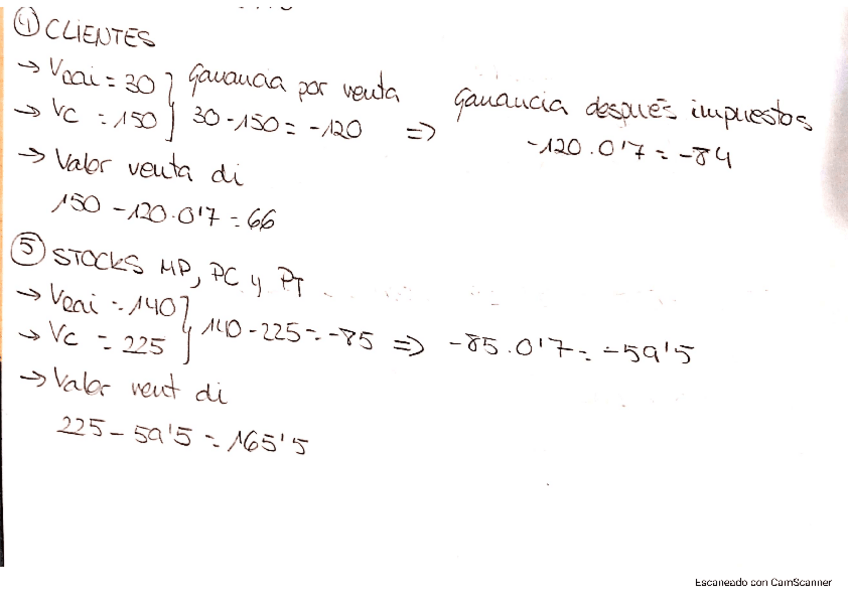 ④ CLIENTES
→ Veai = 30 } Ganancia por venta
→ Vc = 150 } 30 - 150 = -120 => Ganancia después impuestos
-120 · 0'7 = -84
→ Valor venta di
150 - 120 · 0'7 = 66
⑤ STOCKS MP, PC y PT
→ Veai = 140 }
→ Vc = 225 } 140 - 225 = -85 => -85 · 0'7 = -59'5
→ Valor vent di
225 - 59'5 = 165'5
Escaneado con CamScanner